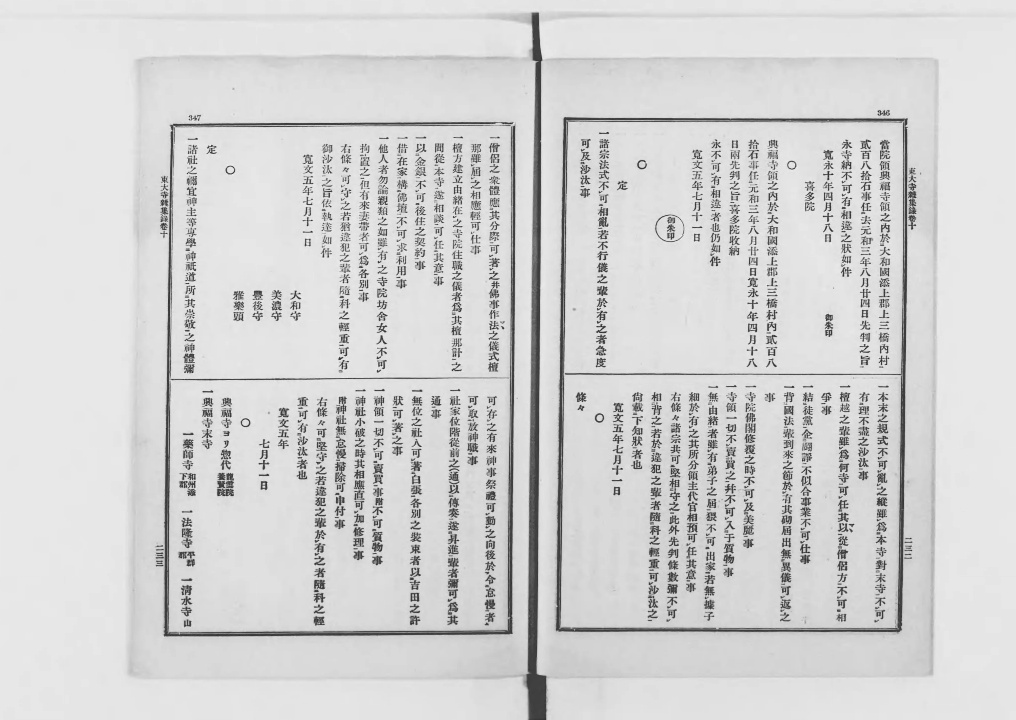 346
東大寺雜集録卷十
當院領興福寺領之内於大和國添上郡上三橋内村
貳百八拾石事任去元和三年八月廿四日先判之旨
永寺納不可有相違之狀如件
寛永十年四月十八日 御朱印
喜多院
○
興福寺領之内於大和國添上郡上三橋村内貳百八
拾石事任元和三年八月廿四日寛永十年四月十八
日兩先判之旨喜多院收納
永不可有相違者也仍如件
寛文五年七月十一日 御朱印
○
定
一諸宗法式不可相亂若不行儀之輩於有之者急度
可及沙汰事
一本末之規式不可亂之縱雖爲本寺對末寺不可
有理不盡之沙汰事
一檀越之輩雖爲何寺可任其以從僧侶方不可相
爭事
一結徒黨企鬪諍不似合事業不可仕事
一背國法輩到來之節於有其砌屆出無異儀可返之
事
一寺院佛閣修覆之時不可及美麗事
一寺領一切不可賣買之幷不可入于質物事
一無由緒者雖有弟子之屆猥不可出家若無據子
細於有之其所分領主代官相預可任其意事
右條々諸宗共可堅相守之此外先判條數彌不可
相背之若於違犯之輩者隨科之輕重可沙汰之
尙載下知狀者也
寛文五年七月十一日
○
條々
二三二
347
東大寺雜集録卷十
一僧侶之衆體應其分際可著之幷佛事作法之儀式檀
那雖屆之相應輕可仕事
一檀方建立由緒在之寺院住職之儀者爲其檀那計之
間從本寺遂相談可任其意事
一以金銀不可後住之契約事
一借在家構佛壇不可求利用事
一他人者勿論親類之如雖有之寺院坊舍女人不可
拘置之但有來妻帶者可爲各別事
右條々可守之若猶違犯之輩者隨科之輕重可有
御沙汰之旨依執達如件
寛文五年七月十一日
大和守
美濃守
豐後守
雅樂頭
○
定
一諸社之禰宜神主等專學神祇道所其崇敬之神體彌
可存之有來神事祭禮可勤之向後於令怠慢者
可取放神職事
一社家位階從前之通以傳奏遂昇進輩者彌可爲其
通事
一無位之社人可著白張各別之裝束者以吉田之許
狀可著之事
一神領一切不可賣買事附不可質物事
一神社小破之時其相應直可加修理事
附神社無怠慢掃除可申付事
右條々可堅守之若違犯之輩於有之者隨科之輕
重可有沙汰者也
寛文五年
七月十一日
○
興福寺ヨリ惣代 龍雲院 養賢院
一興福寺末寺
一藥師寺 和州添下郡 一法隆寺 平群郡 一清水寺 山
二三三